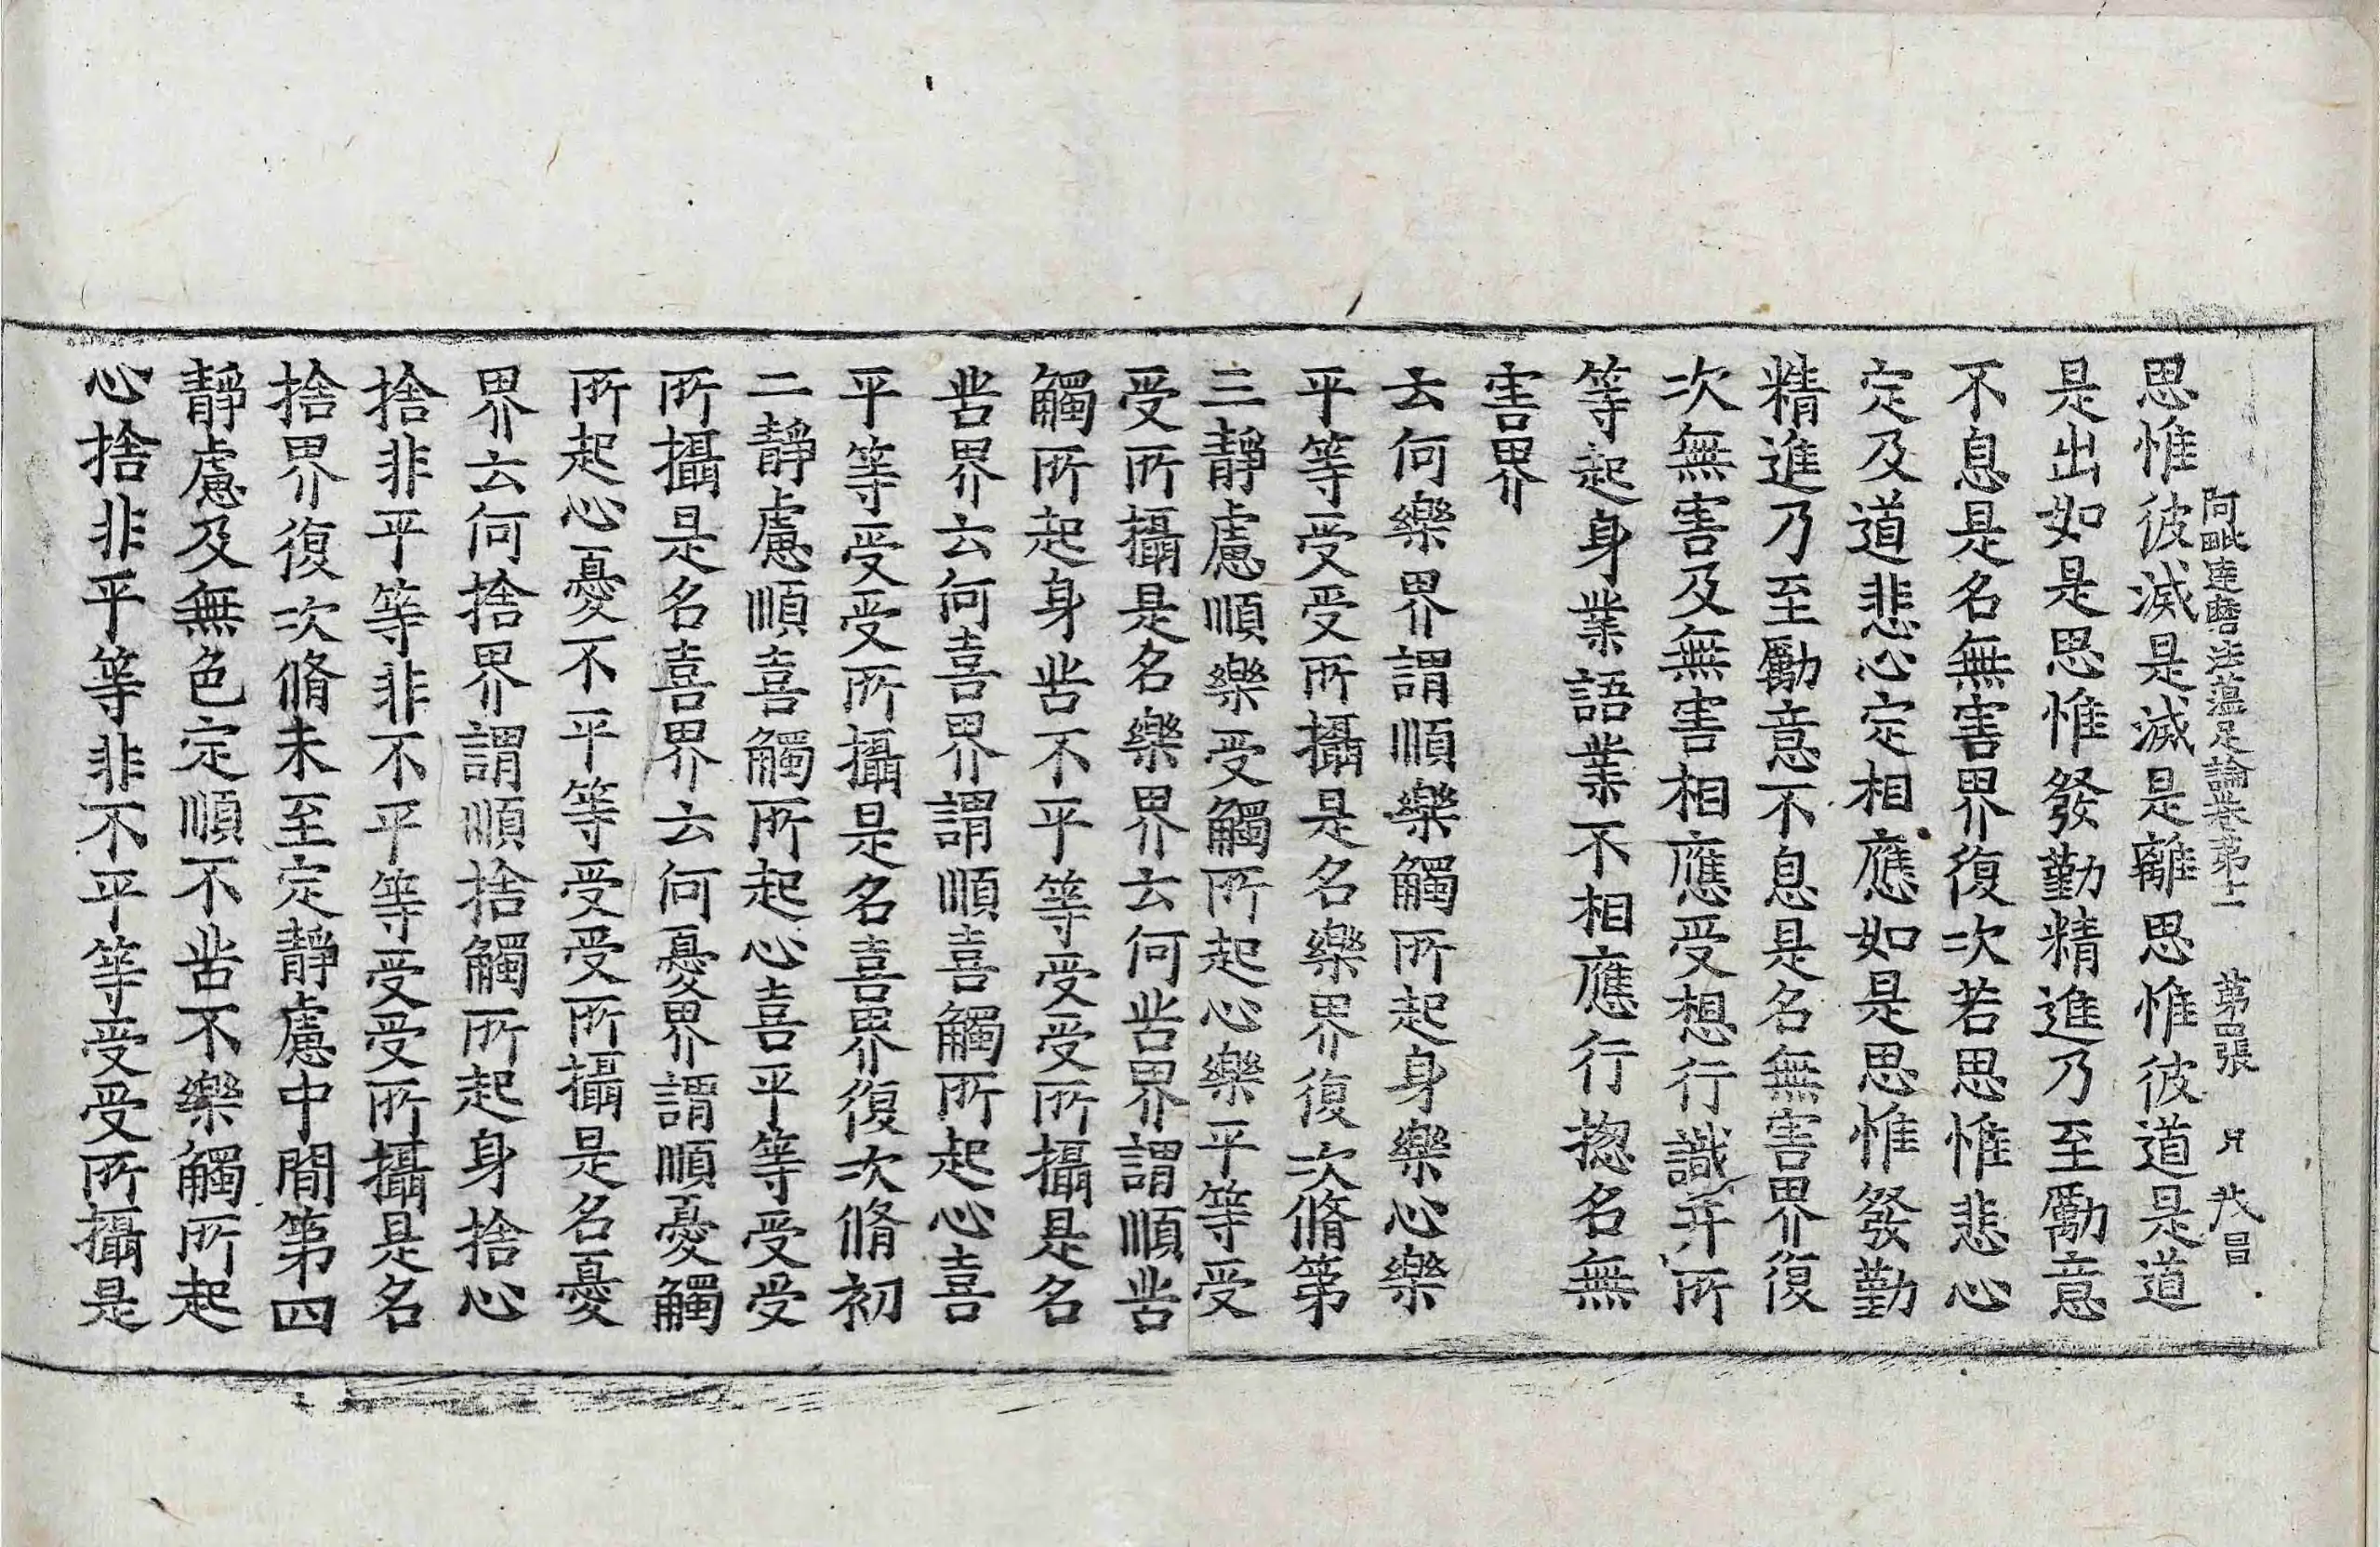 阿毗達磨法蘊足論卷第十二 第四張 月 大昌
思惟彼滅是滅是離思惟彼道是道
是出如是思惟發勤精進乃至勵意
不息是名無害界復次若思惟悲心
定及道悲心定相應如是思惟發勤
精進乃至勵意不息是名無害界復
次無害及無害相應受想行識并所
等起身業語業不相應行揔名無
害界
云何樂界謂順樂觸所起身樂心樂
平等受受所攝是名樂界復次脩第
三靜慮順樂受觸所起心樂平等受
受所攝是名樂界云何苦界謂順苦
觸所起身苦不平等受受所攝是名
苦界云何喜界謂順喜觸所起心喜
平等受受所攝是名喜界復次脩初
二靜慮順喜觸所起心喜平等受受
所攝是名喜界云何憂界謂順憂觸
所起心憂不平等受受所攝是名憂
界云何捨界謂順捨觸所起身捨心
捨非平等非不平等受受所攝是名
捨界復次脩未至定靜慮中間第四
靜慮及無色定順不苦不樂觸所起
心捨非平等非不平等受受所攝是